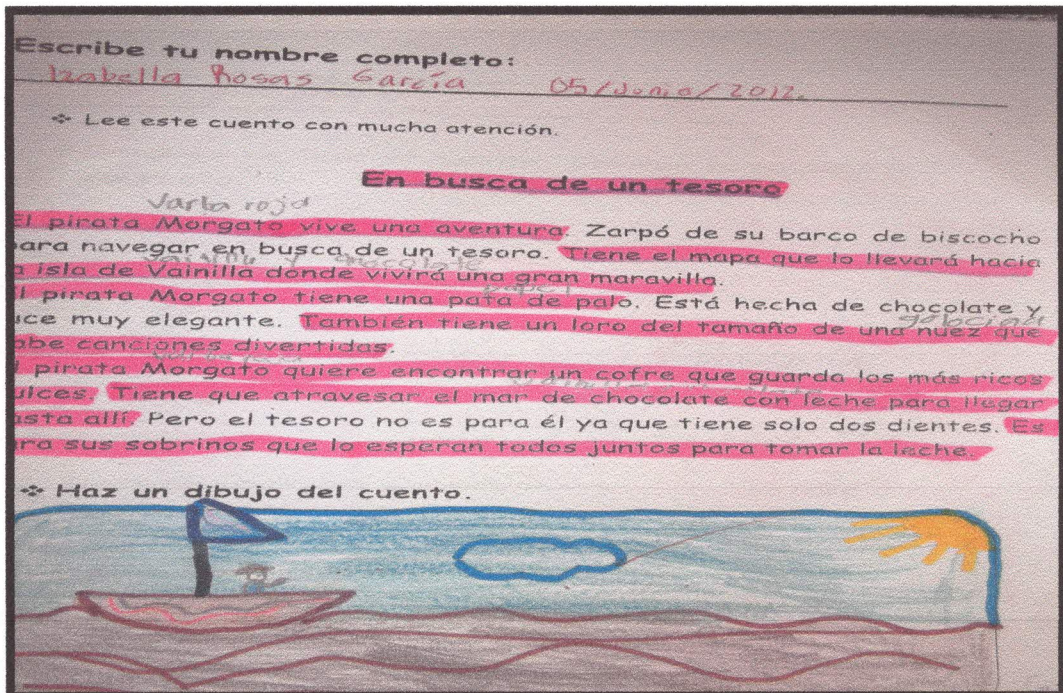 Escribe tu nombre completo:
Izabella Rosas García 05/Junio/2012.
❖ Lee este cuento con mucha atención.
En busca de un tesoro
Varba roja
El pirata Morgato vive una aventura. Zarpó de su barco de biscocho
para navegar en busca de un tesoro. Tiene el mapa que lo llevará hacia
a isla de Vainilla donde vivirá una gran maravilla.
l pirata Morgato tiene una pata de palo. Está hecha de chocolate y
uce muy elegante. También tiene un loro del tamaño de una nuez que
abe canciones divertidas.
l pirata Morgato quiere encontrar un cofre que guarda los más ricos
ulces. Tiene que atravesar el mar de chocolate con leche para llegar
asta allí. Pero el tesoro no es para él ya que tiene solo dos dientes. Es
ara sus sobrinos que lo esperan todos juntos para tomar la leche.
❖ Haz un dibujo del cuento.